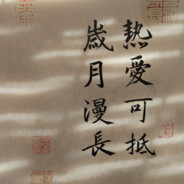 熱愛可抵
歲月漫長